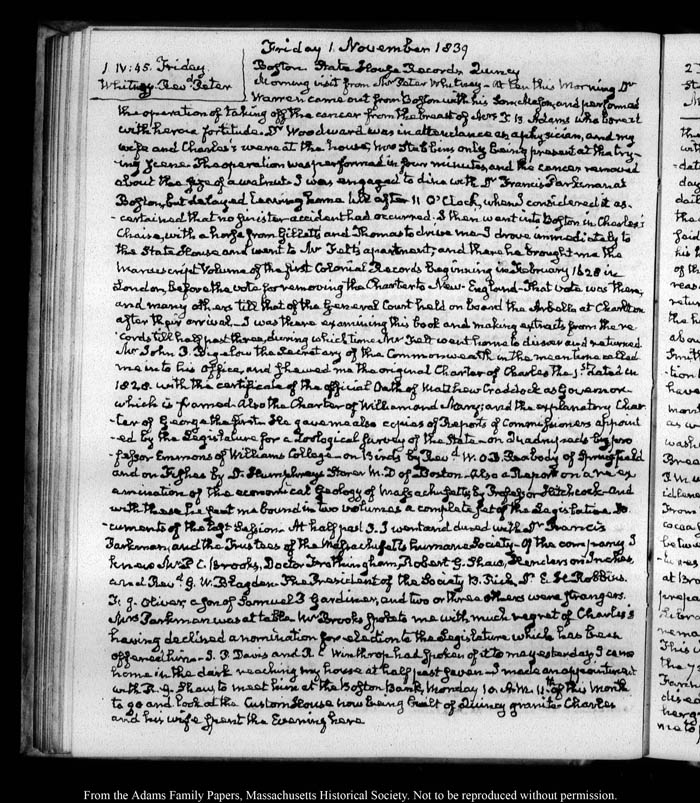 Friday 1. November 1839
1. IV:45. Friday
Whitney Revd Peter
Boston State House Records Quincy
Morning visit from Mr Peter Whitney – At ten this Morning Dr
Warren came out from Boston with his Son Mason, and performed
the operation of taking off the cancer from the breast of Mrs T. B. Adams who bore it
with heroic fortitude. Dr Woodward was in attendance as a physician, and my
wife and Charles's were at the house, Mrs Stebbins only being present at the try-
-ing scene. The operation was performed in four minutes, and the cancer removed
about the size of a walnut. I was engaged to dine with Dr Francis Parkman at
Boston, but delayed leaving home till after 11 O'Clock, when I considered it as-
-certained that no sinister accident had occurred. I then went into Boston in Charles's
Chaise, with a horse from Gilletts and Thomas to drive me. I drove immediately to
the State House and went to Mr Felt's apartment, and there he brought me the
Manuscript Volume of the first Colonial Records beginning in February 1628 in
London, before the vote for removing the Charter to New-England – That vote was there,
and many others till that of the General Court held on board the Arbella at Charlton
after their arrival – I was there examining this book and making extracts from the re
cords till half past three, during which time Mr Felt went home to dinner and returned
Mr John P. Bigelow the Secretary of the Commonwealth in the mean time called
me into his Office, and shewed me the original Charter of Charles the 1st dated in
1628. with the certificate of the official Oath of Matthew Craddock as Governor
which is framed. Also the Charter of William and Mary; and the explanatory Char-
-ter of George the first – He gave me also copies of Reports of Commissioners appoint
-ed by the Legislature for a Zoological Survey of the State – on Quadrupeds by pro
-fessor Emmons of Williams College – on Birds by Revd W. O. B. Peabody of Springfield
and on Fishes by D. Humphreys Storer M.D of Boston. Also a Report on a re ex
amination of the economical Geology of Massachusetts by Professor Hitchcock – And
with these he sent me bound in two volumes a complete set of the Legislative Do
-cuments of the last Session. At half past 3. I went and dined with Dr Francis
Parkman, and the Trustees of the Massachusetts humane Society – Of the company I
knew Mr P. C. Brooks, Doctor Frothingham, Robert G. Shaw, Henderson Inches,
and Revd G. W. Blagden – The President of the Society B. Rich, Dr E. H. Robbins.
F. J. Oliver, a son of Samuel P. Gardiner, and two or three others were strangers.
Mrs Parkman was at table. Mr Brooks spoke to me with much regret of Charles's
having declined a nomination for election to the Legislature which has been
offered him – I. P. Davis and R. C Winthrop had spoken of it to me yesterday. I came
home in the dark reaching my house at half past seven – I made an appointment
with R. G. Shaw to meet him at the Boston Bank, Monday 10. A.M. 11th of this Month
to go and look at the Custom House now being built of Quincy granite – Charles
and his wife spent the Evening here
From the Adams Family Papers, Massachusetts Historical Society. Not to be reproduced without permission.